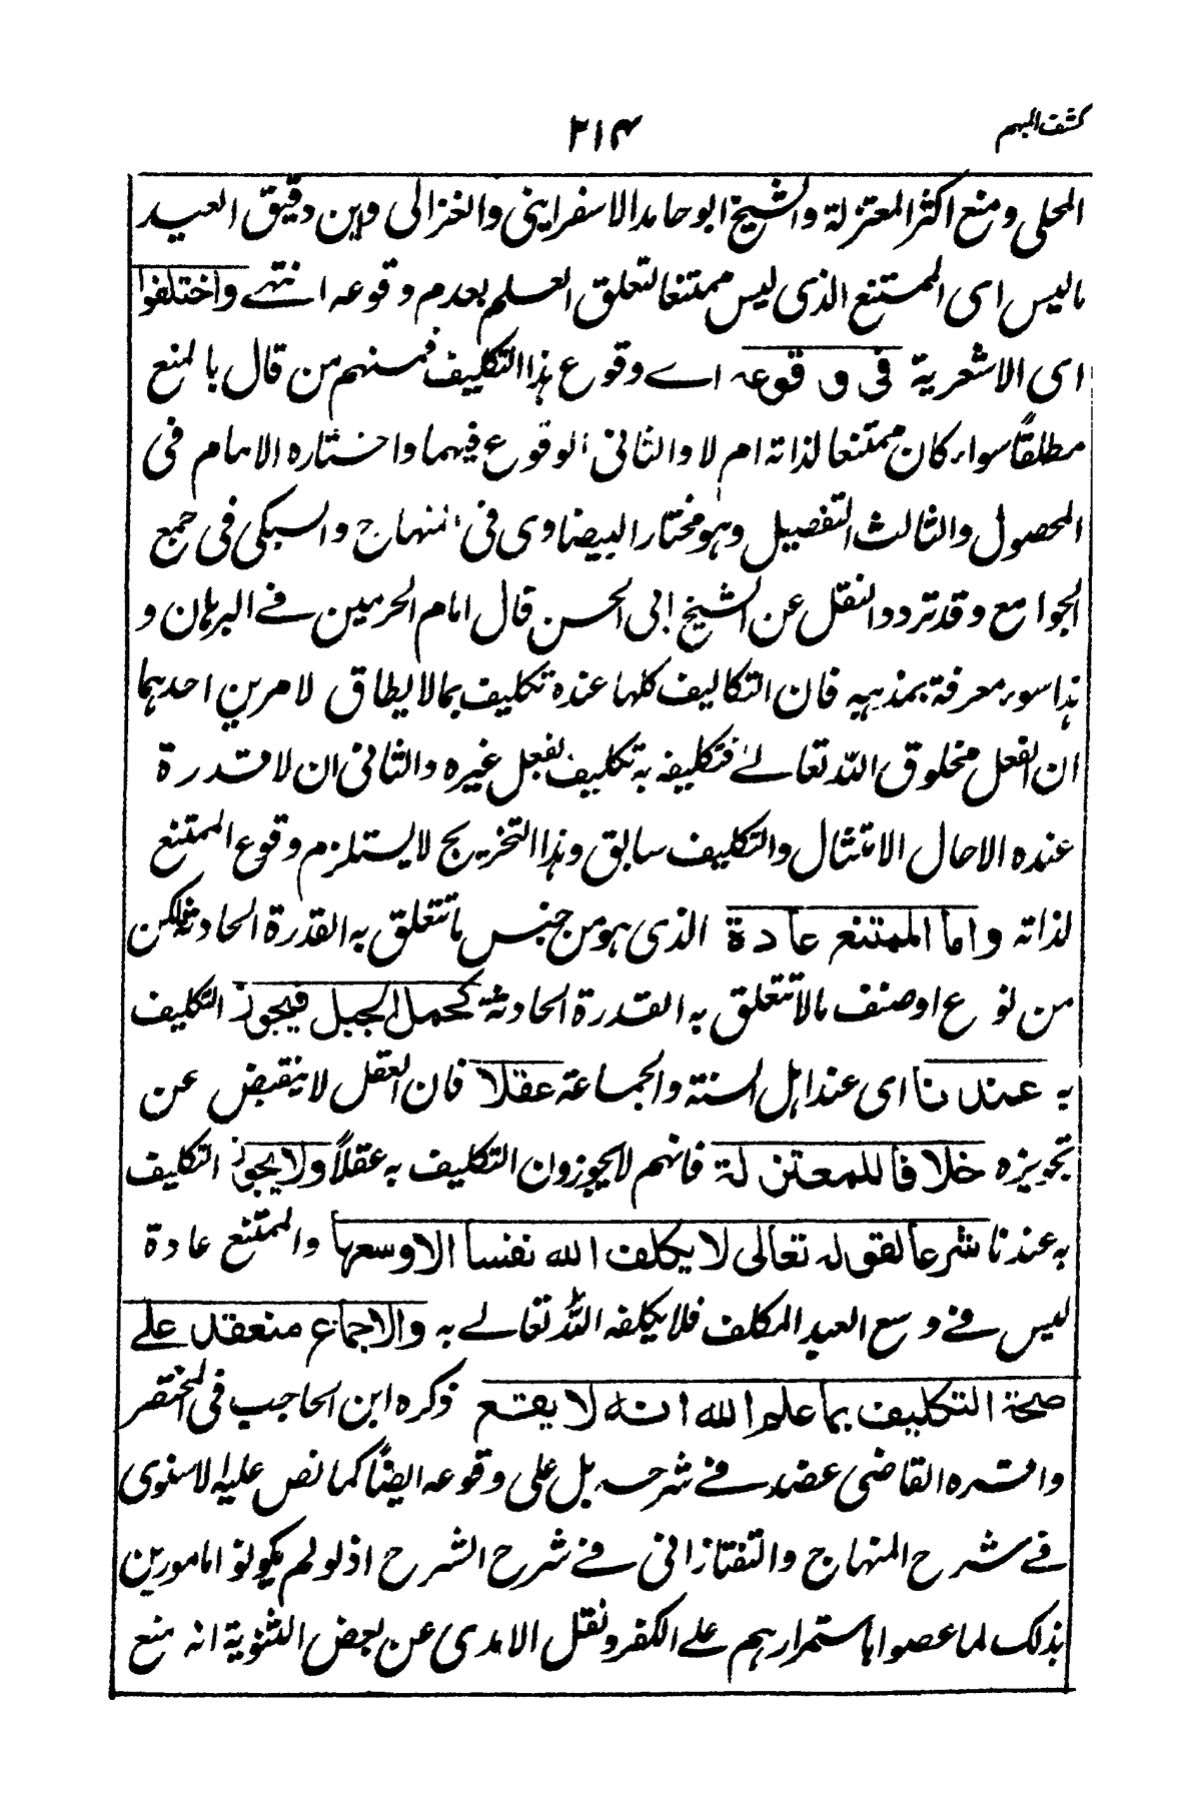 كشف المبهم
۲۱۴
المحلى ومنع اكثر المعتزلة والشيخ ابو حامد الاسفراينى والغزالى وابن دقيق العيد
ما ليس اى الممتنع الذى ليس ممتنعا لتعلق العلم بعدم وقوعه انتهے واختلفوا
اى الاشعرية فى وقوعه اے وقوع هذا التكليف فمنهم من قال بالمنع
مطلقًا سواء كان ممتنعا لذاته ام لا والثانى الوقوع فيهما واختاره الامام فى
المحصول والثالث التفصيل وهو مختار البيضاوى فى المنهاج والسبكى فى جمع
الجوامع وقد تردد النقل عن الشيخ ابى الحسن قال امام الحرمين فے البرهان و
هذا سوء معرفة بمذهبه فان التكاليف كلها عنده تكليف بما لا يطاق لامرين احدهما
ان الفعل مخلوق الله تعالےٰ فتكليفه به تكليف بفعل غيره والثانى ان لا قدرة
عنده الا حال الامتثال والتكليف سابق وهذا التخريج لا يستلزم وقوع الممتنع
لذاته واما الممتنع عادة الذى هو من جنس ما تتعلق به القدرة الحادثة لكن
من نوع او صنف ما لا تتعلق به القدرة الحادثة كحمل الجبل فيجوز التكليف
به عندنا اى عند اهل السنة والجماعة عقلا فان العقل لا ينقبض عن
تجويزه خلافا للمعتزلة فانهم لا يجوزون التكليف به عقلاً ولا يجوز التكليف
به عندنا شرعا لقوله تعالى لا يكلف الله نفسا الا وسعها والممتنع عادة
ليس فے وسع العبد المكلف فلا يكلفه الله تعالے به والاجماع منعقد علے
صحة التكليف بما علم الله انه لا يقع ذكره ابن الحاجب فى المختصر
واقره القاضى عضد فے شرحه بل على وقوعه ايضًا كما نص عليه الاسنوى
فے شرح المنهاج والتفتازانى فے شرح الشرح اذ لو لم يكونوا مامورين
بذلك لما عصوا باستمرارهم علے الكفر ونقل الامدى عن بعض الثنوية انه منع